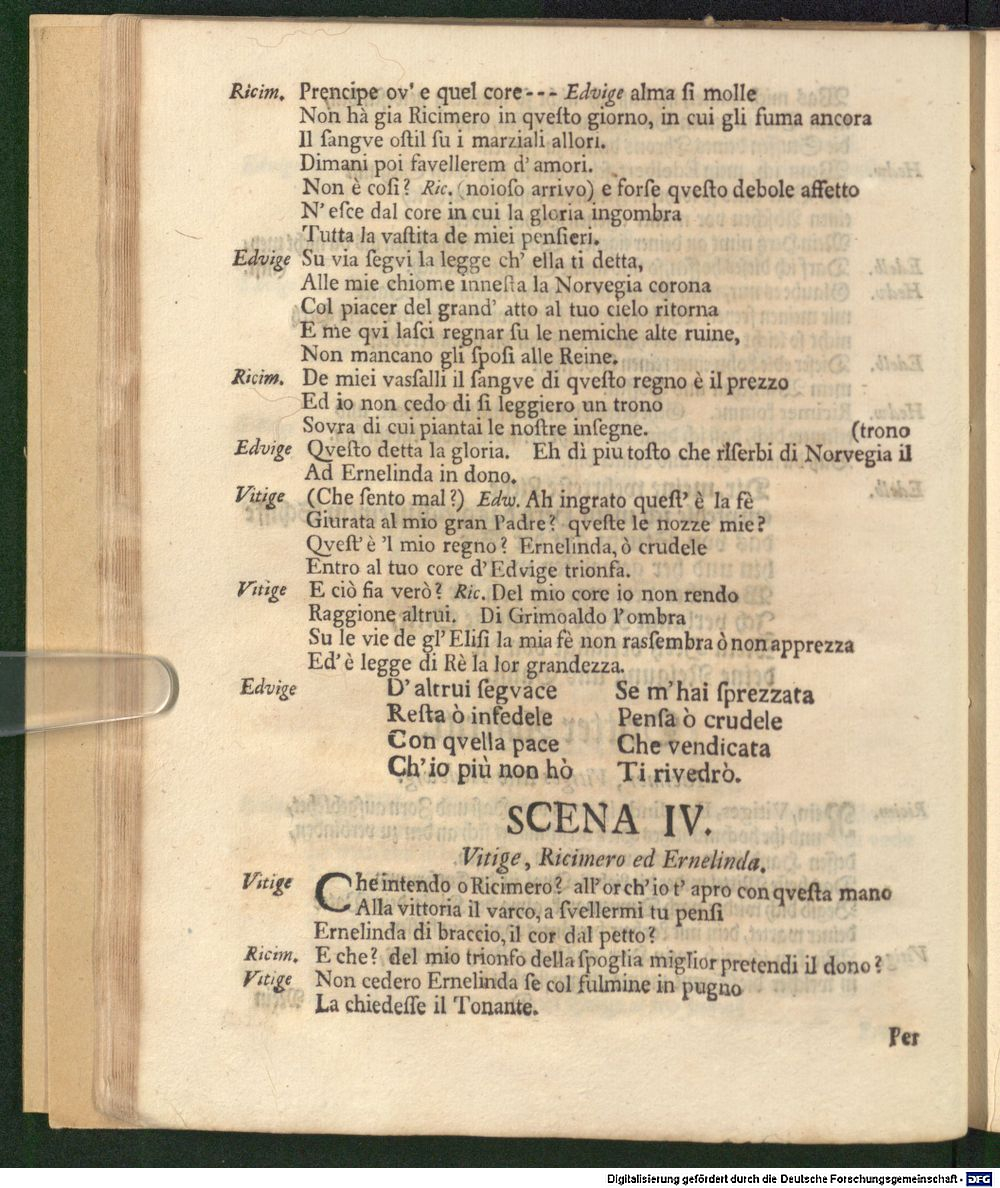 Ricim. Prencipe ov' e quel core --- Edvige alma ſi molle
Non hà gia Ricimero in qveſto giorno, in cui gli fuma ancora
Il ſangve oſtil ſu i marziali allori.
Dimani poi favellerem d' amori.
Non è coſi? Ric. (noioſo arrivo) e forſe qveſto debole affetto
N' eſce dal core in cui la gloria ingombra
Tutta la vaſtita de miei penſieri.
Edvige Su via ſegvi la legge ch' ella ti detta,
Alle mie chiome inneſta la Norvegia corona
Col piacer del grand' atto al tuo cielo ritorna
E me qvi laſci regnar ſu le nemiche alte ruine,
Non mancano gli ſpoſi alle Reine.
Ricim. De miei vaſſalli il ſangve di qveſto regno è il prezzo
Ed io non cedo di ſi leggiero un trono
Sovra di cui piantai le noſtre inſegne. (trono
Edvige Qveſto detta la gloria. Eh dì piu toſto che rIſerbi di Norvegia il
Ad Ernelinda in dono.
Vitige (Che ſento mal?) Edw. Ah ingrato queſt' è la fè
Giurata al mio gran Padre? qveſte le nozze mie?
Qveſt' è 'l mio regno? Ernelinda, ò crudele
Entro al tuo core d' Edvige trionfa.
Vitige E ciò fia verò? Ric. Del mio core io non rendo
Raggione altrui. Di Grimoaldo l'ombra
Su le vie de gl' Eliſi la mia fè non raſſembra ò non apprezza
Ed' è legge di Rè la lor grandezza.
Edvige D' altrui ſegvace
Reſta ò infedele
Con qvella pace
Ch' io più non hò
Se m' hai ſprezzata
Penſa ò crudele
Che vendicata
Ti rivedrò.
SCENA IV.
Vitige, Ricimero ed Ernelinda.
Vitige Che intendo o Ricimero? all' or ch' io t' apro con qveſta mano
Alla vittoria il varco, a ſvellermi tu penſi
Ernelinda di braccio, il cor dal petto?
Ricim. E che? del mio trionfo della ſpoglia miglior pretendi il dono?
Vitige Non cedero Ernelinda ſe col fulmine in pugno
La chiedeſſe il Tonante.
Per
Digitalisierung gefördert durch die Deutsche Forschungsgemeinschaft - DFG